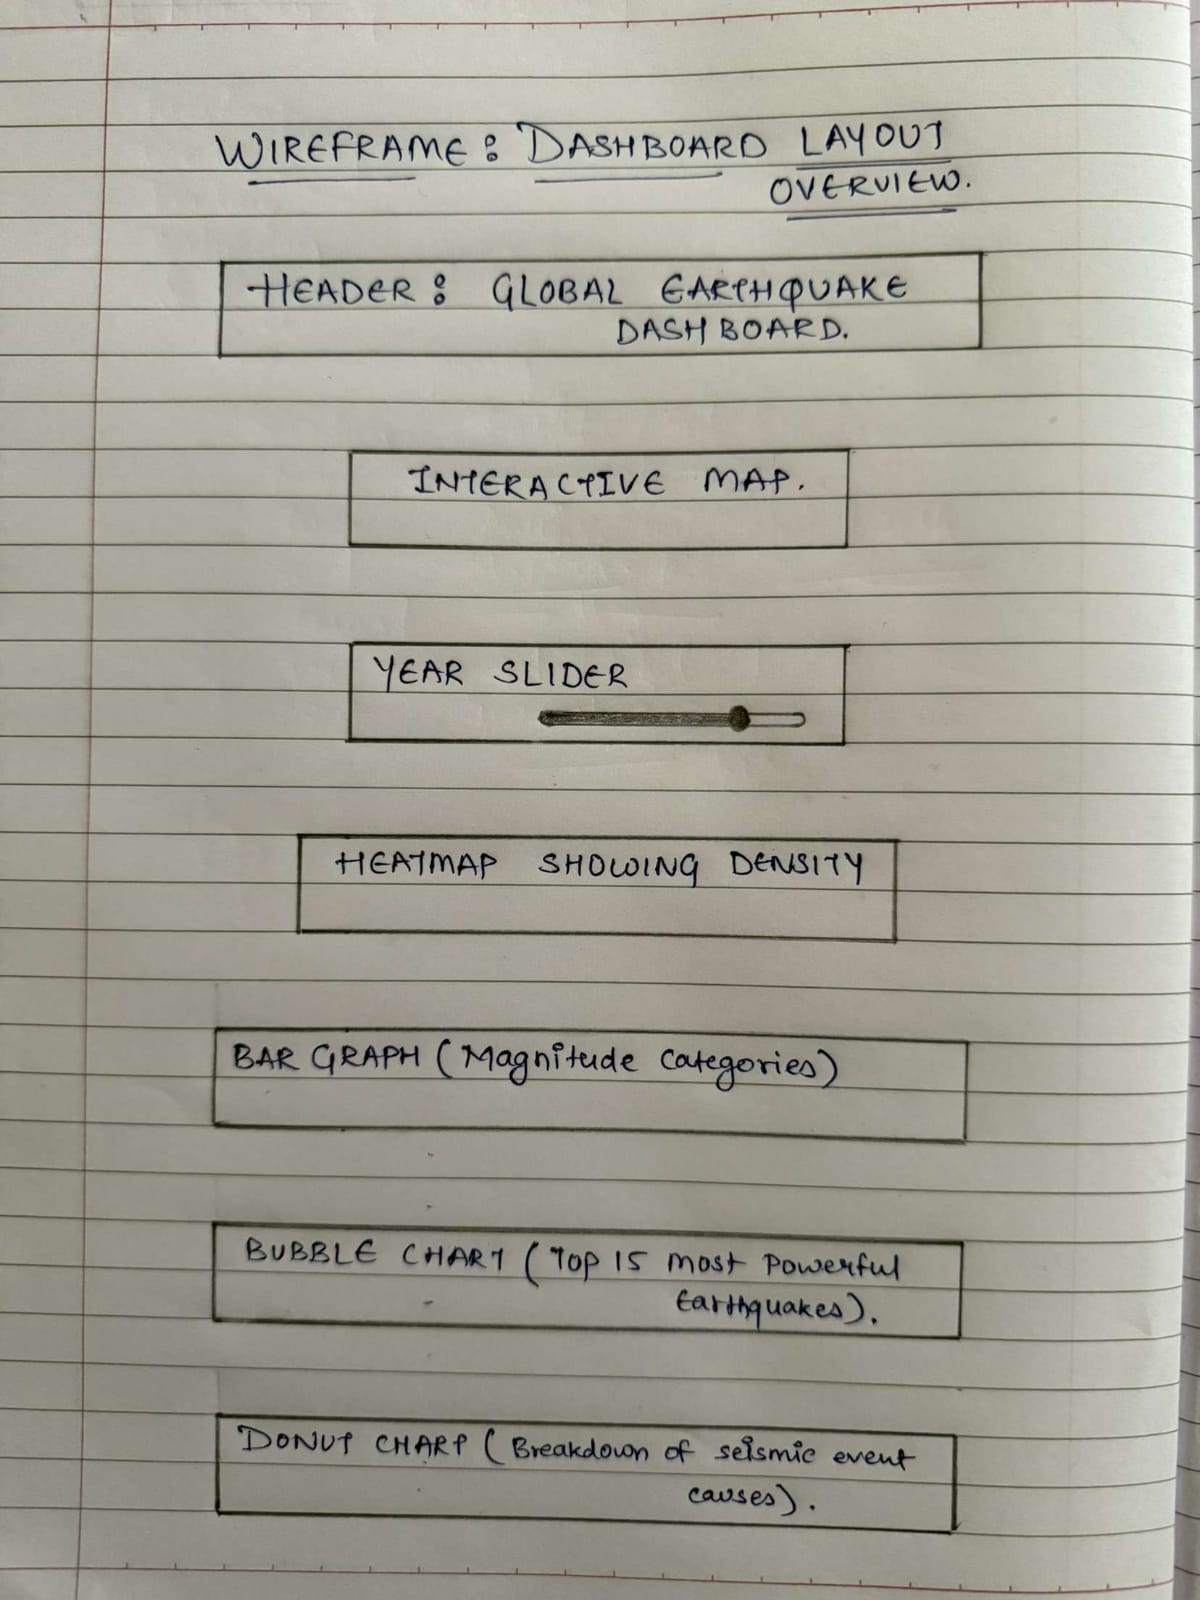 WIREFRAME: DASHBOARD LAYOUT
OVERVIEW.
HEADER: GLOBAL EARTHQUAKE
DASHBOARD.
INTERACTIVE MAP.
YEAR SLIDER
HEATMAP SHOWING DENSITY
BAR GRAPH (Magnitude Categories)
BUBBLE CHART (Top 15 most Powerful
Earthquakes).
DONUT CHART (Breakdown of seismic event
causes).